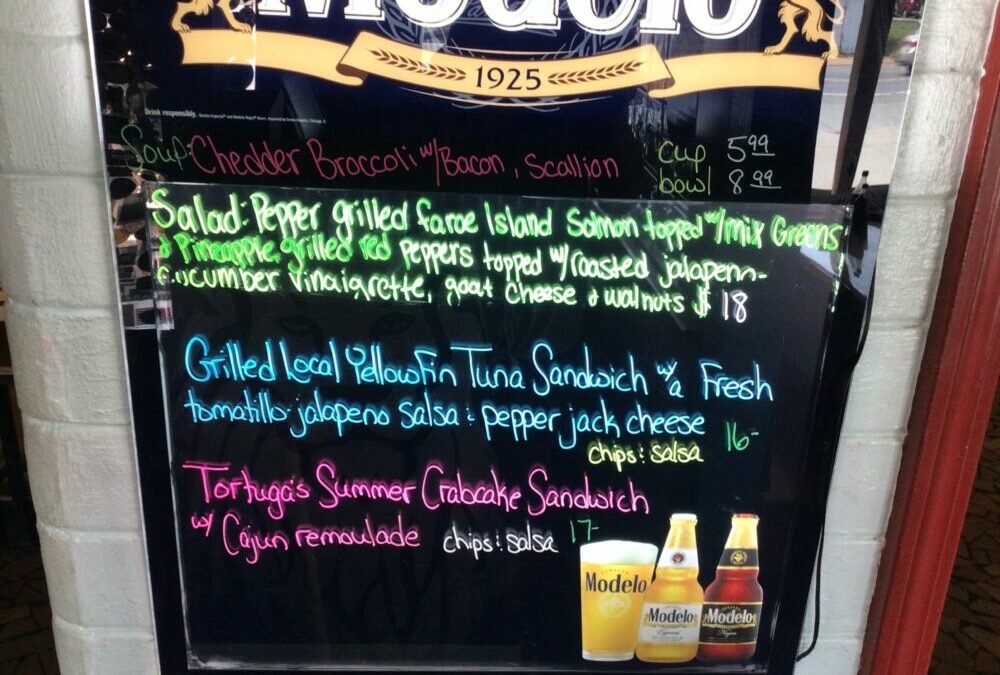 Modelo
1925
Drink responsibly.
Soup: Chedder Broccoli w/ Bacon, Scallion cup 5.99
bowl 8.99
Salad: Pepper grilled faroe Island Salmon topped w/ mix Greens
& Pineapple, grilled red peppers topped w/ roasted jalapeno-
Cucumber Vinaigrette, goat cheese & walnuts $18
Grilled Local Yellowfin Tuna Sandwich w/ a Fresh
tomatillo-jalapeno salsa & pepper jack cheese 16-
chips & salsa
Tortuga's Summer Crabcake Sandwich
w/ Cajun remoulade chips & salsa 17-
Modelo
Modelo
Especial
Modelo
Negra